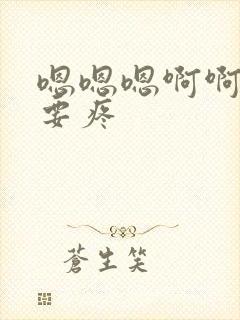 嗯嗯嗯啊啊
要疼
蒼生笑